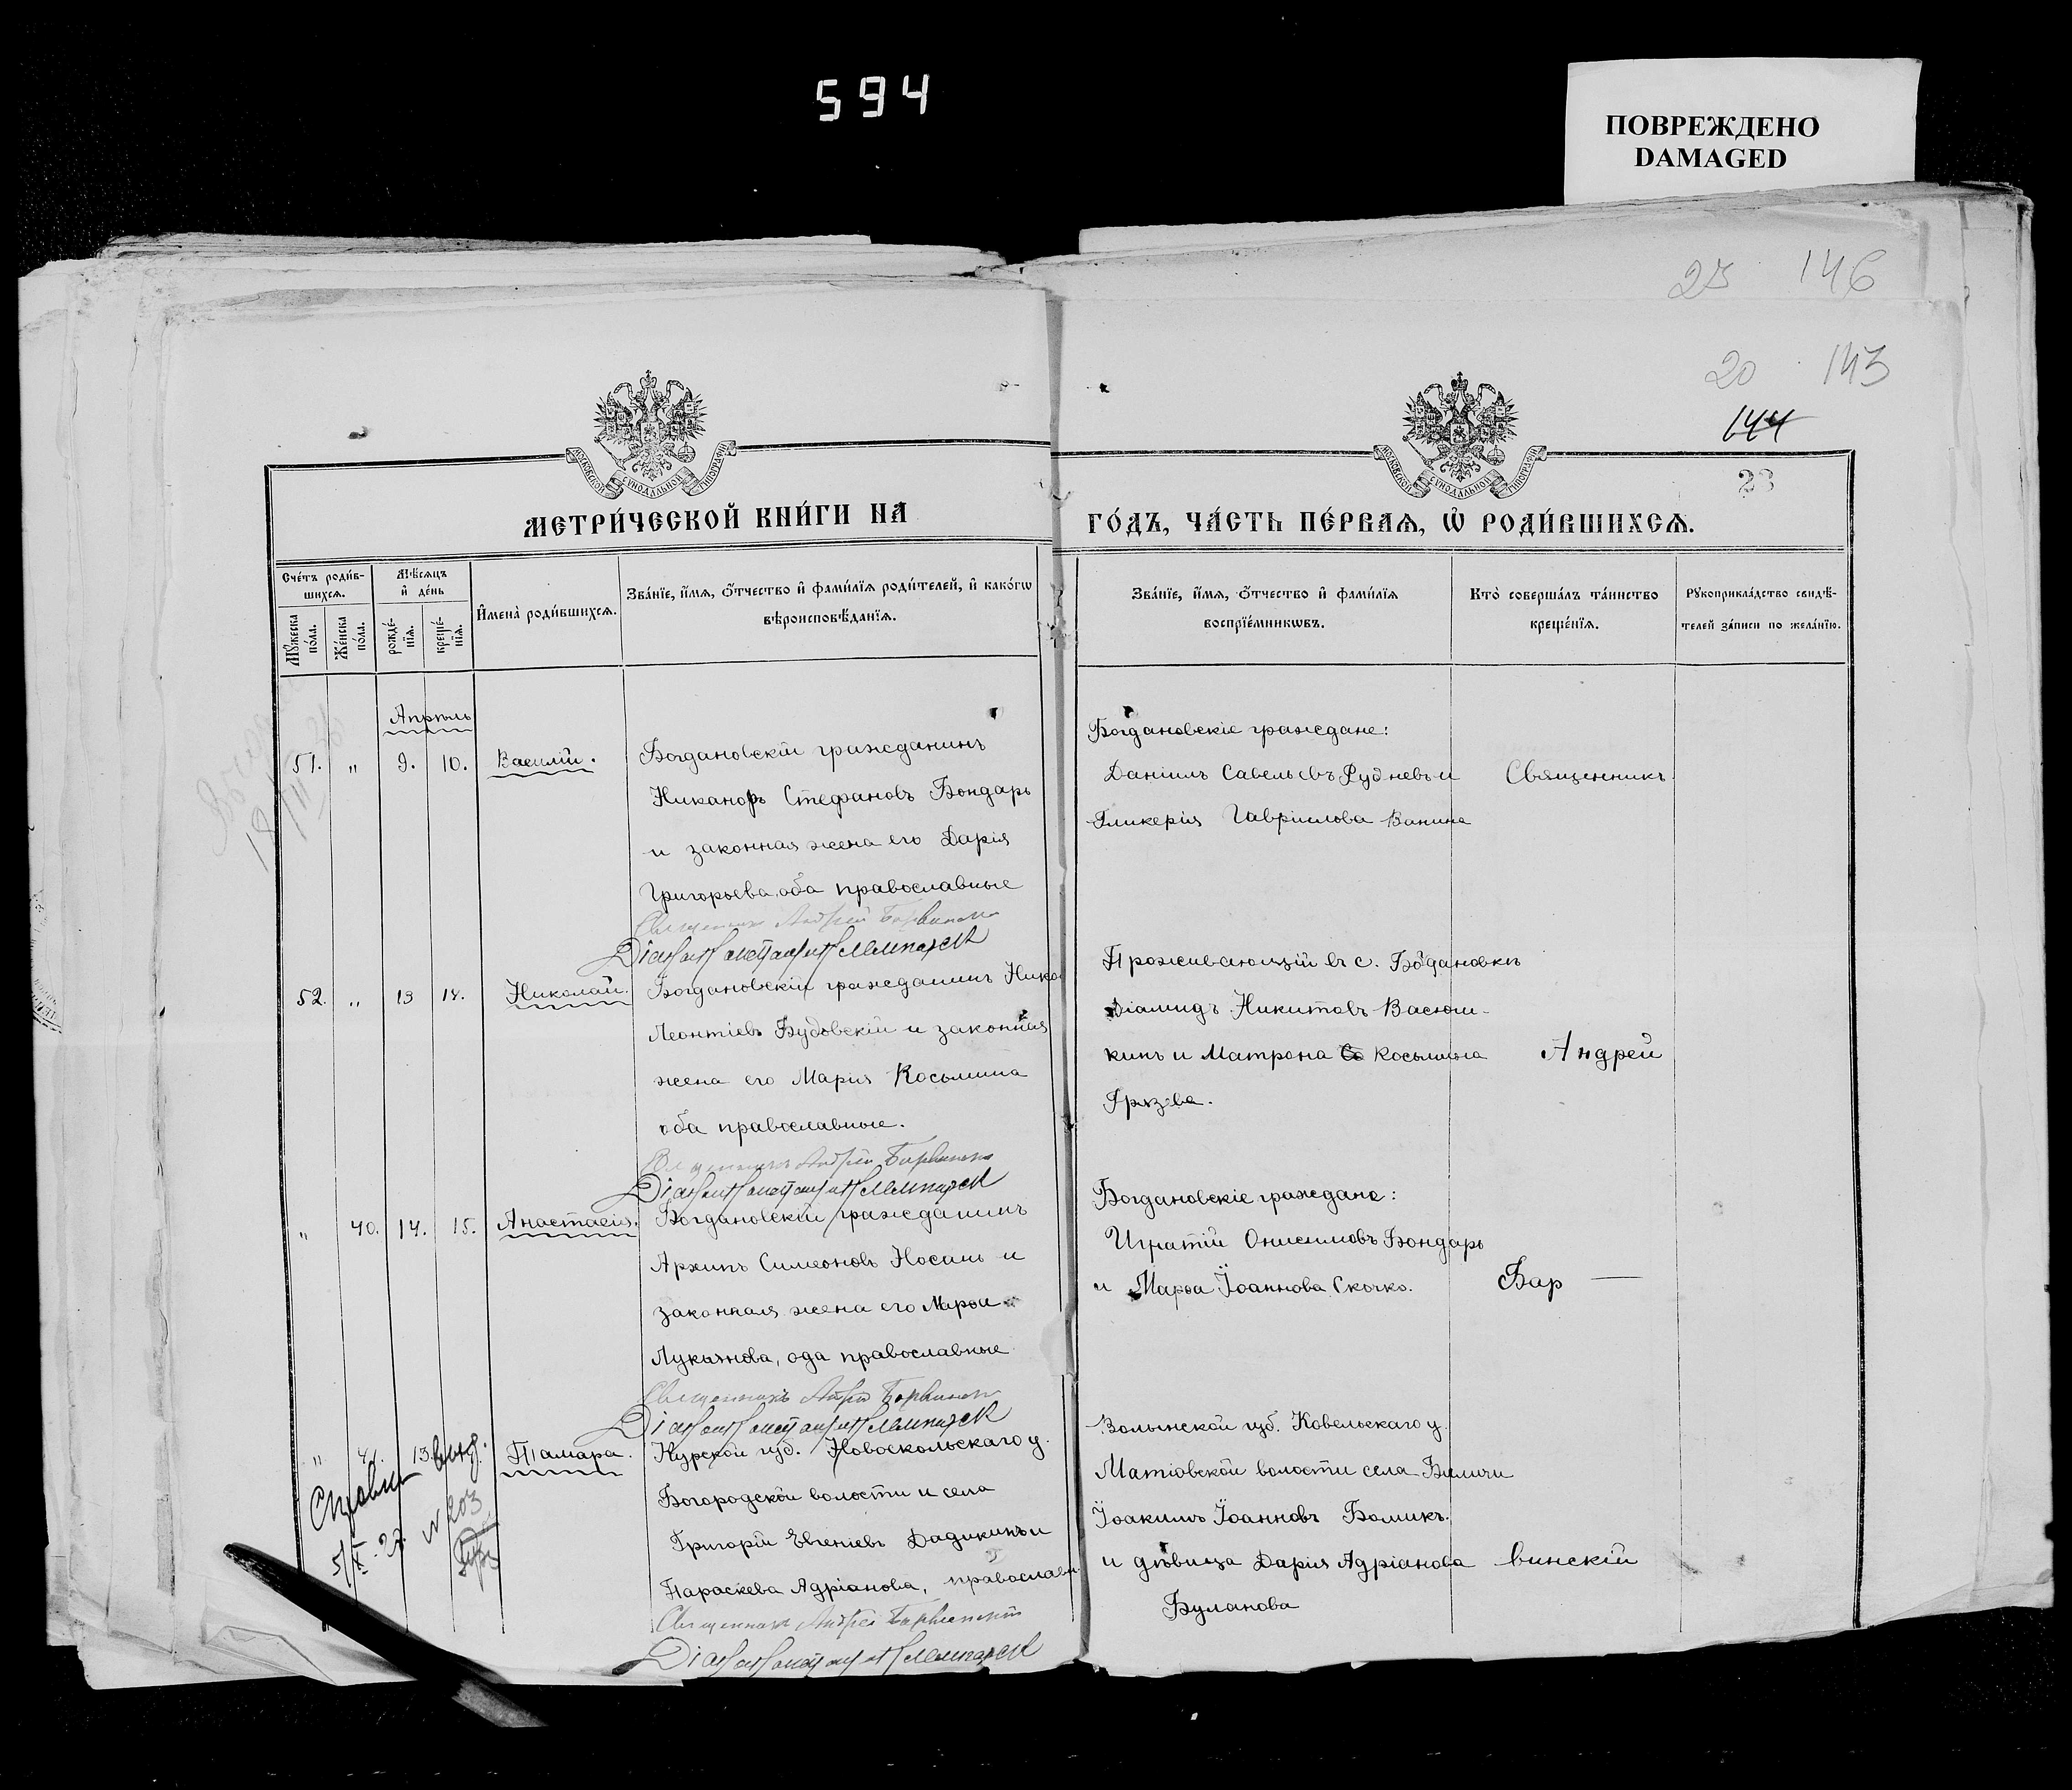 594
ПОВРЕЖДЕНО
DAMAGED
25 146
20 143
144
23
МОСКОВСКОЙ СѴНОДАЛЬНОЙ ТИПОГРАФІИ
МОСКОВСКОЙ СѴНОДАЛЬНОЙ ТИПОГРАФІИ
МЕТРИ́ЧЕСКОЙ КНИ́ГИ НА
ГО́ДЪ, ЧА́СТЬ ПЕ́РВАѦ, Ѡ҆ РОДИ́ВШИХСѦ.
Сче́тъ роди́в-
шихсѧ.
Мꙋ́жеска по́ла.
Же́нска по́ла.
Мѣ́сѧцъ
и҆ де́нь
рожде́-
нїѧ.
креще́-
нїѧ.
И҆мена̀ роди́вшихсѧ.
Зва́нїе, и҆́мѧ, ѻ҆́тчество и҆ фами́лїѧ роди́телей, и҆ како́гѡ
вѣроисповѣ́данїѧ.
Зва́нїе, и҆́мѧ, ѻ҆́тчество и҆ фами́лїѧ
воспрїе́мникѡвъ.
Кто̀ соверша́лъ та́инство
креще́нїѧ.
Рꙋкоприкла́дство свидѣ́-
телей за́писи по жела́нїю.
Апрѣль
51. " 9. 10. Василій.
Богдановскій гражданинъ
Никаноръ Стефановъ Бондарь
и законная жена его Дарія
Григорьева, оба православные
Священникъ Андрей Барвинскій
Богдановскіе граждане:
Даніилъ Савельевъ Рудневъ и
Гликерія Гавріилова Ванина
Священникъ
52. " 13 14. Николай.
Богдановскій гражданинъ Нико
Леонтіевъ Будовскій и законная
жена его Марія Косьмина
оба православные.
Священникъ Андрей Барвинскій
Проживающій въ с. Богдановкѣ
Діамидъ Никитовъ Васюш-
кинъ и Матрона Косьмина
Грязева.
Андрей
" 40. 14. 15. Анастасія.
Богдановскій гражданинъ
Архипъ Симеоновъ Носань и
законная жена его Марѳа
Лукьянова, ода православные
Священникъ Андрей Барвинскій
Богдановскіе граждане:
Игнатій Онисимовъ Бондарь
и Марѳа Іоаннова Скочко.
Бар —
" 41. 13. Тамара.
Курской губ. Новоскольскаго у.
Богородской волости и села
Григорій Евгеніевъ Дадыкинъ и
Параскева Адріанова, православн.
Священникъ Андрей Барвинскій
Волынской губ. Ковельскаго у.
Матіовской волости села Биличи
Іоакимъ Іоанновъ Бомикъ.
и дѣвица Дарія Адріанова
Буланова
винскій
5/X-27. N 203